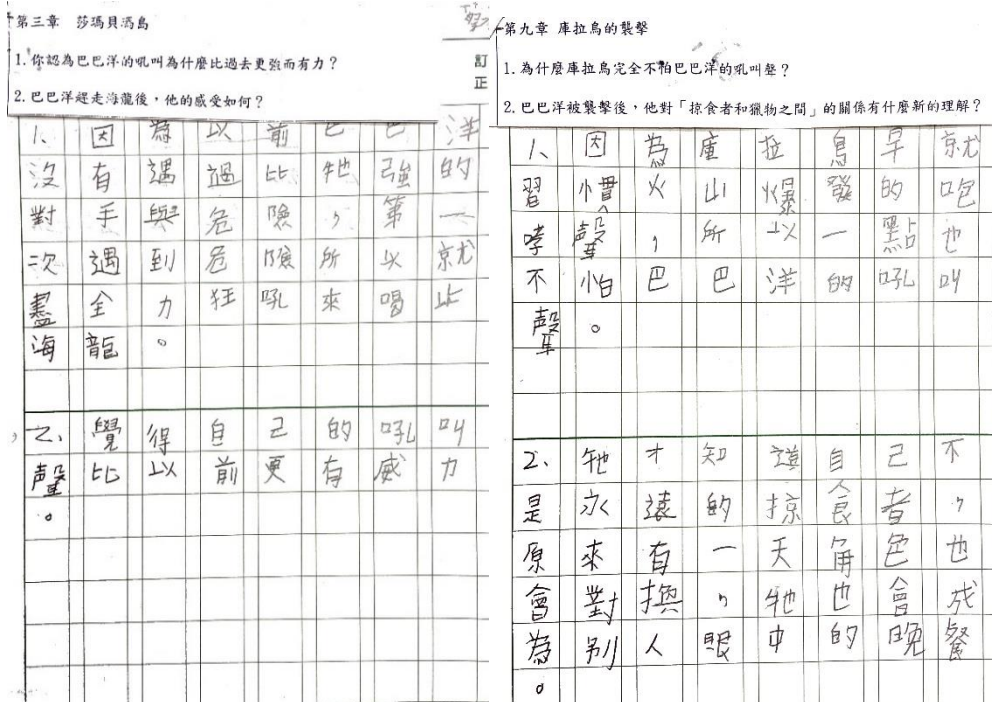 第三章 莎瑪貝馮島
1.你認為巴巴洋的吼叫為什麼比過去更強而有力？
2.巴巴洋趕走海龍後，他的感受如何？
訂正
1、因為以前巴巴洋
沒有遇過比牠強的
對手與危險，第一
次遇到危險所以就
盡全力狂吼來喝止
海龍。
2、覺得自己的吼叫
聲比以前更有威力
。
第九章 庫拉鳥的襲擊
1.為什麼庫拉鳥完全不怕巴巴洋的吼叫聲？
2.巴巴洋被襲擊後，他對「掠食者和獵物之間」的關係有什麼新的理解？
1、因為庫拉鳥早就
習慣火山爆發的咆
哮聲，所以一點也
不怕巴巴洋的吼叫
聲。
2、牠才知道自己不
是永遠的掠食者，
原來有一天角色也
會對換，牠也會成
為別人眼中的晚餐
。